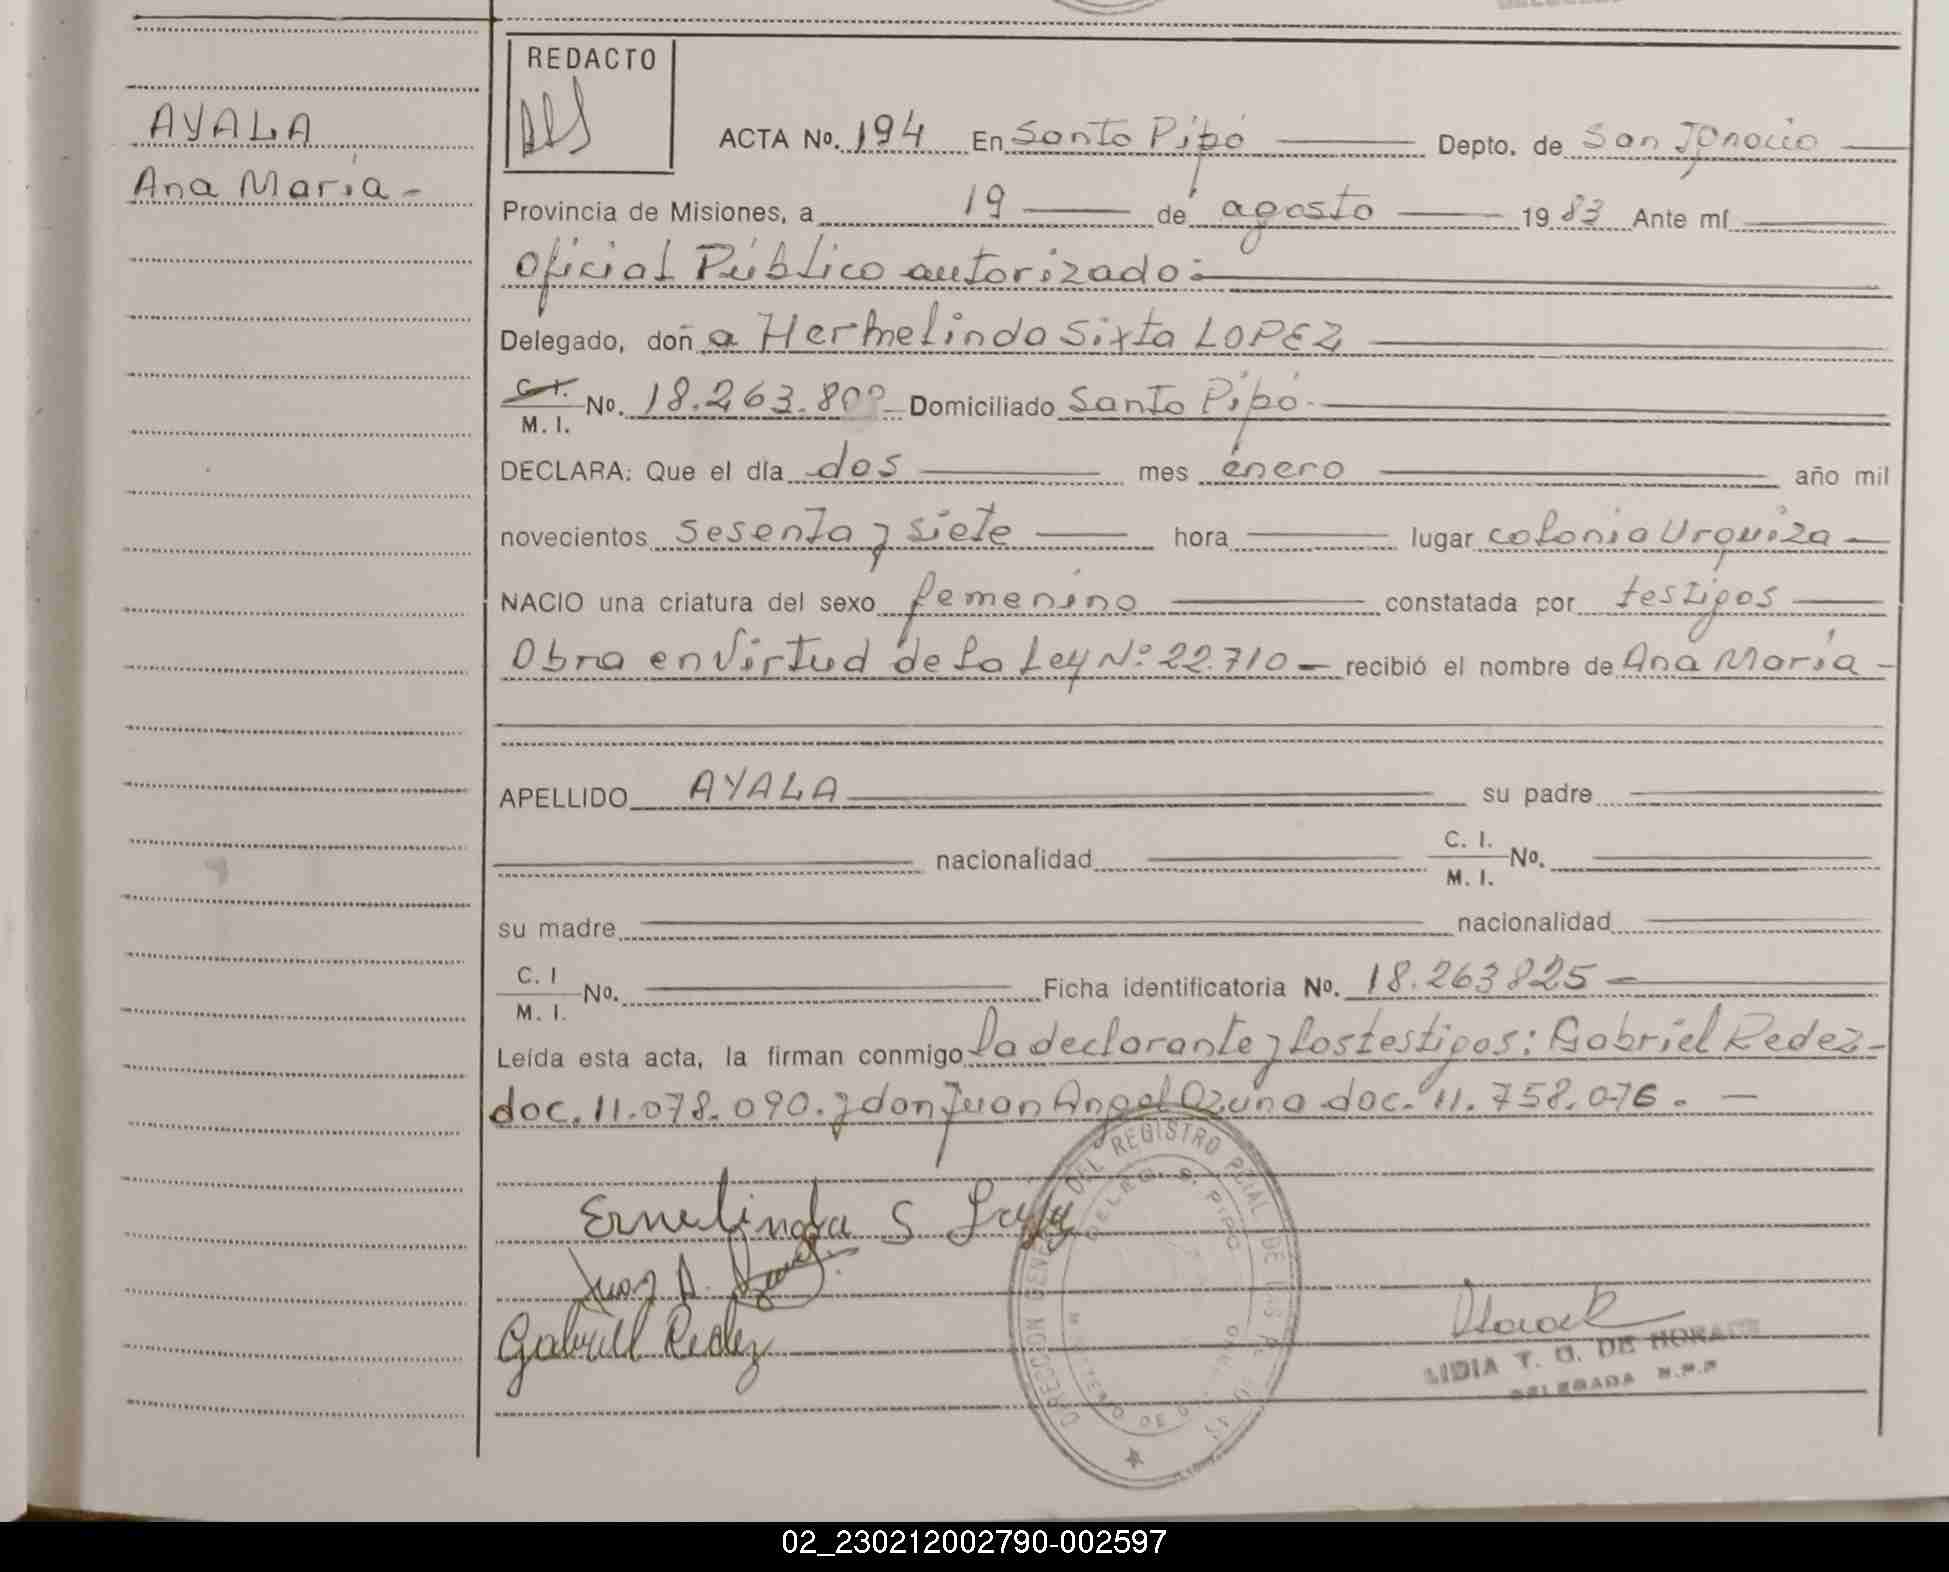 AYALA
Ana María -
REDACTO
ACTA No. 194 En Santo Pipó Depto. de San Ignacio
Provincia de Misiones, a 19 de agosto 1983 Ante mí
Oficial Público autorizado:
Delegado, doña Hermelinda Sixta LOPEZ
C. I.
M. I. No. 18.263.80 Domiciliado Santo Pipó.
DECLARA: Que el día dos mes enero año mil
novecientos sesenta y siete hora lugar colonia Urquiza
NACIO una criatura del sexo femenino constatada por testigos
Obra en Virtud de la Ley N° 22.710 recibió el nombre de Ana María
APELLIDO AYALA su padre
nacionalidad C. I.
M. I. No.
su madre nacionalidad
C. I
M. I. No. Ficha identificatoria No. 18.263825
Leída esta acta, la firman conmigo la declarante y los testigos: Gabriel Redez
doc. 11.078.090. y don Juan Angel Ozuna doc. 11.758.076.
Ermelinda S
Juan A.
Gabriel Redez
DIRECCION GENERAL DEL REGISTRO PCIAL DE LAS
DELEG. S. PIPO
LIDIA T. G. DE
DELEGADA R.P.P
02_230212002790-002597